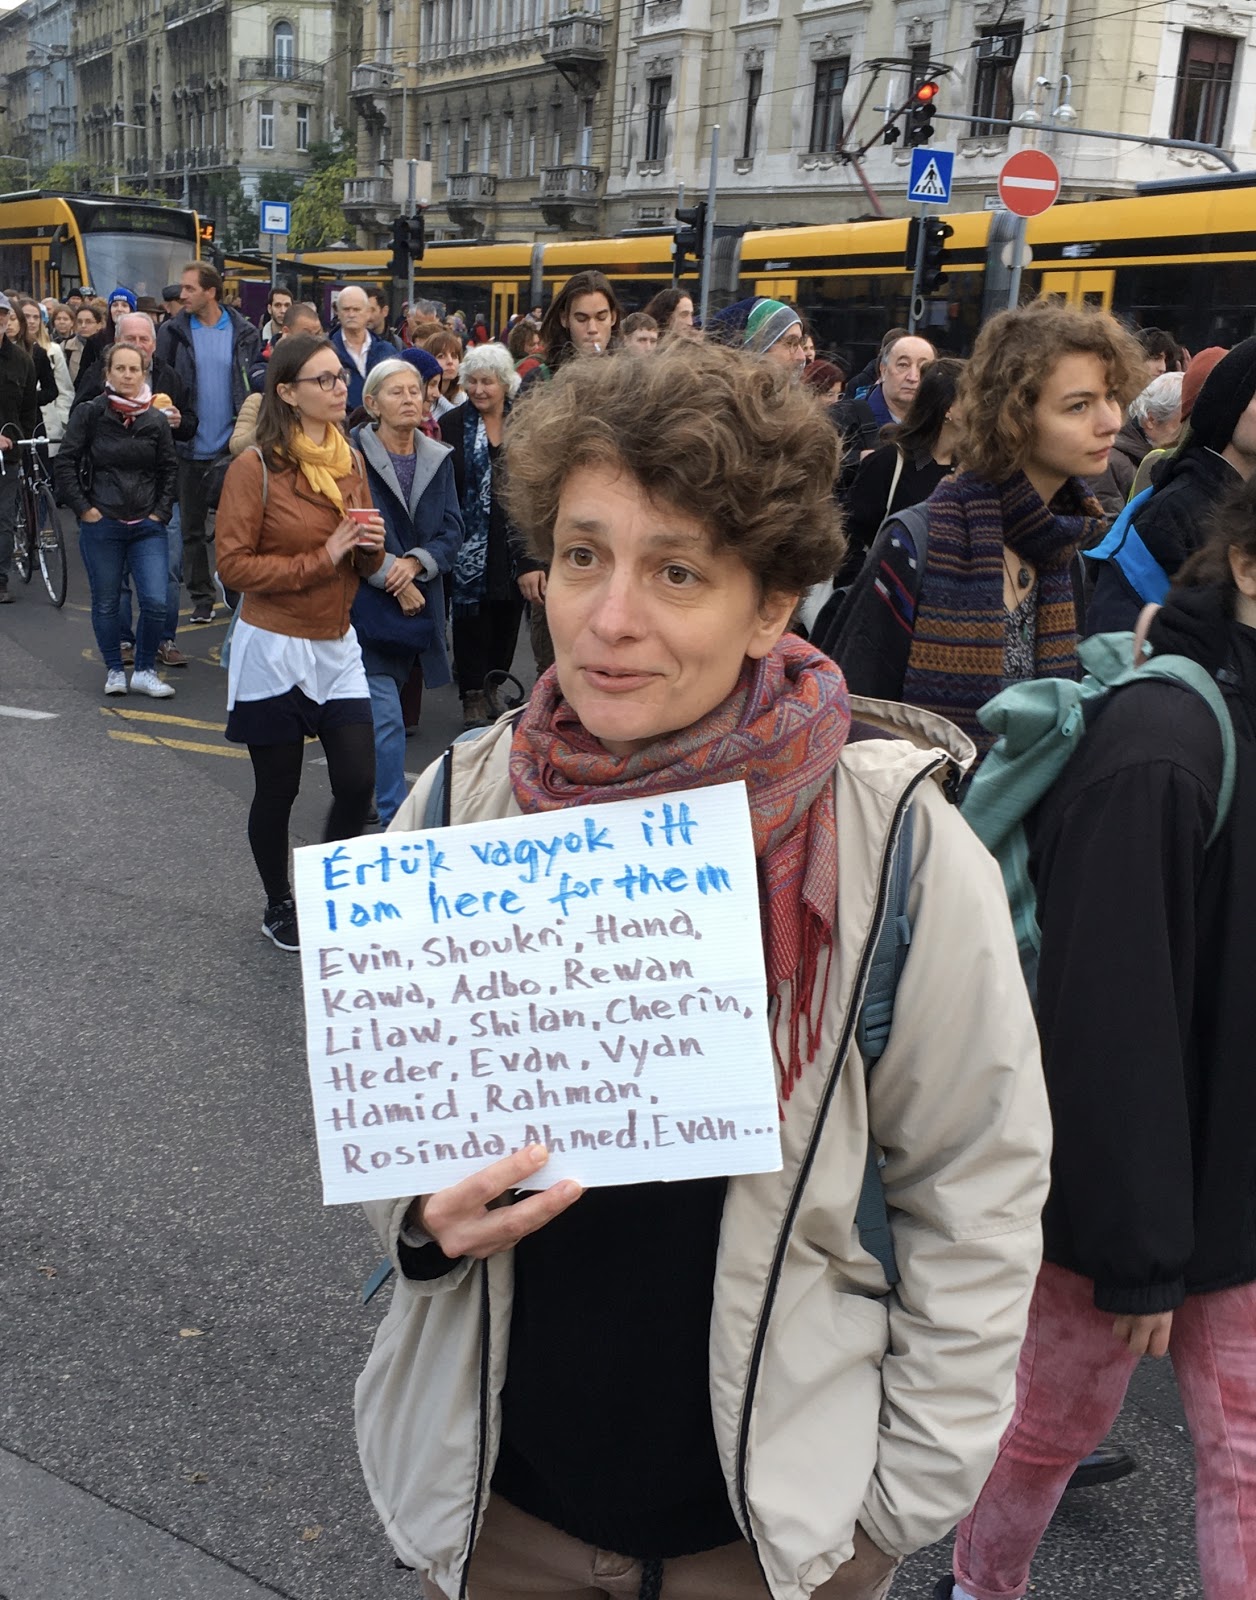 Értük vagyok itt
I am here for them
Evin, Shoukri, Hana,
Kawa, Adbo, Rewan
Lilaw, Shilan, Cherin,
Heder, Evan, Vyan
Hamid, Rahman,
Rosinda, Ahmed, Evan...